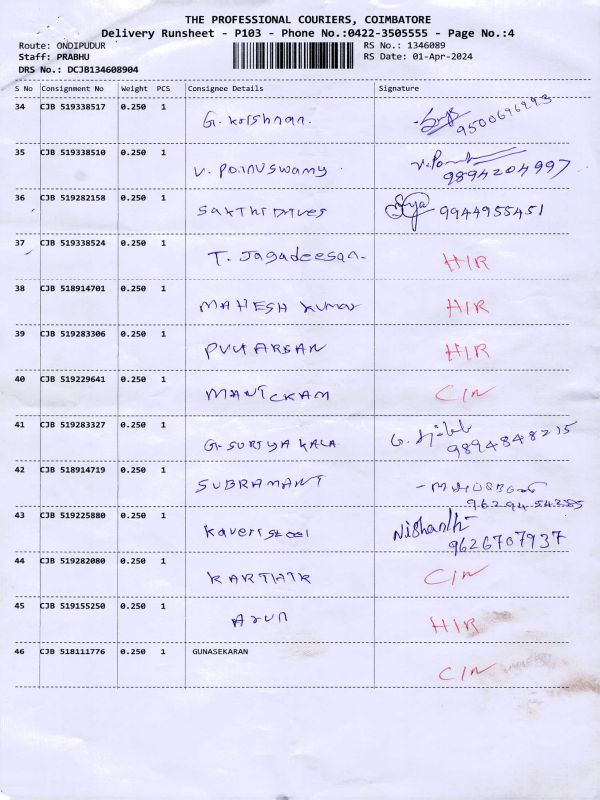 THE PROFESSIONAL COURIERS, COIMBATORE
Delivery Runsheet - P103 - Phone No.:0422-3505555 - Page No.:4
Route: ONDIPUDUR RS No.: 1346089
Staff: PRABHU RS Date: 01-Apr-2024
DRS No.: DCJB134608904
S No Consignment No Weight PCS Consignee Details Signature
34 CJB 519338517 0.250 1 G. Krishnan. 9500696293
35 CJB 519338510 0.250 1 V. Ponnuswamy 9894204997
36 CJB 519282158 0.250 1 Sakthi Drives 9944955451
37 CJB 519338524 0.250 1 T. Jagadeesan. HIR
38 CJB 518914701 0.250 1 MAHESH KUMAR HIR
39 CJB 519283306 0.250 1 HIR
40 CJB 519229641 0.250 1 MANICKAM CIN
41 CJB 519283327 0.250 1 G. SURIYA KALA 9894848215
42 CJB 518914719 0.250 1 SUBRAMANI
43 CJB 519225880 0.250 1 Kaveri Steel Nishanth
9626707937
44 CJB 519282080 0.250 1 KARTHIK CIN
45 CJB 519155250 0.250 1 Arun HIR
46 CJB 518111776 0.250 1 GUNASEKARAN CIN